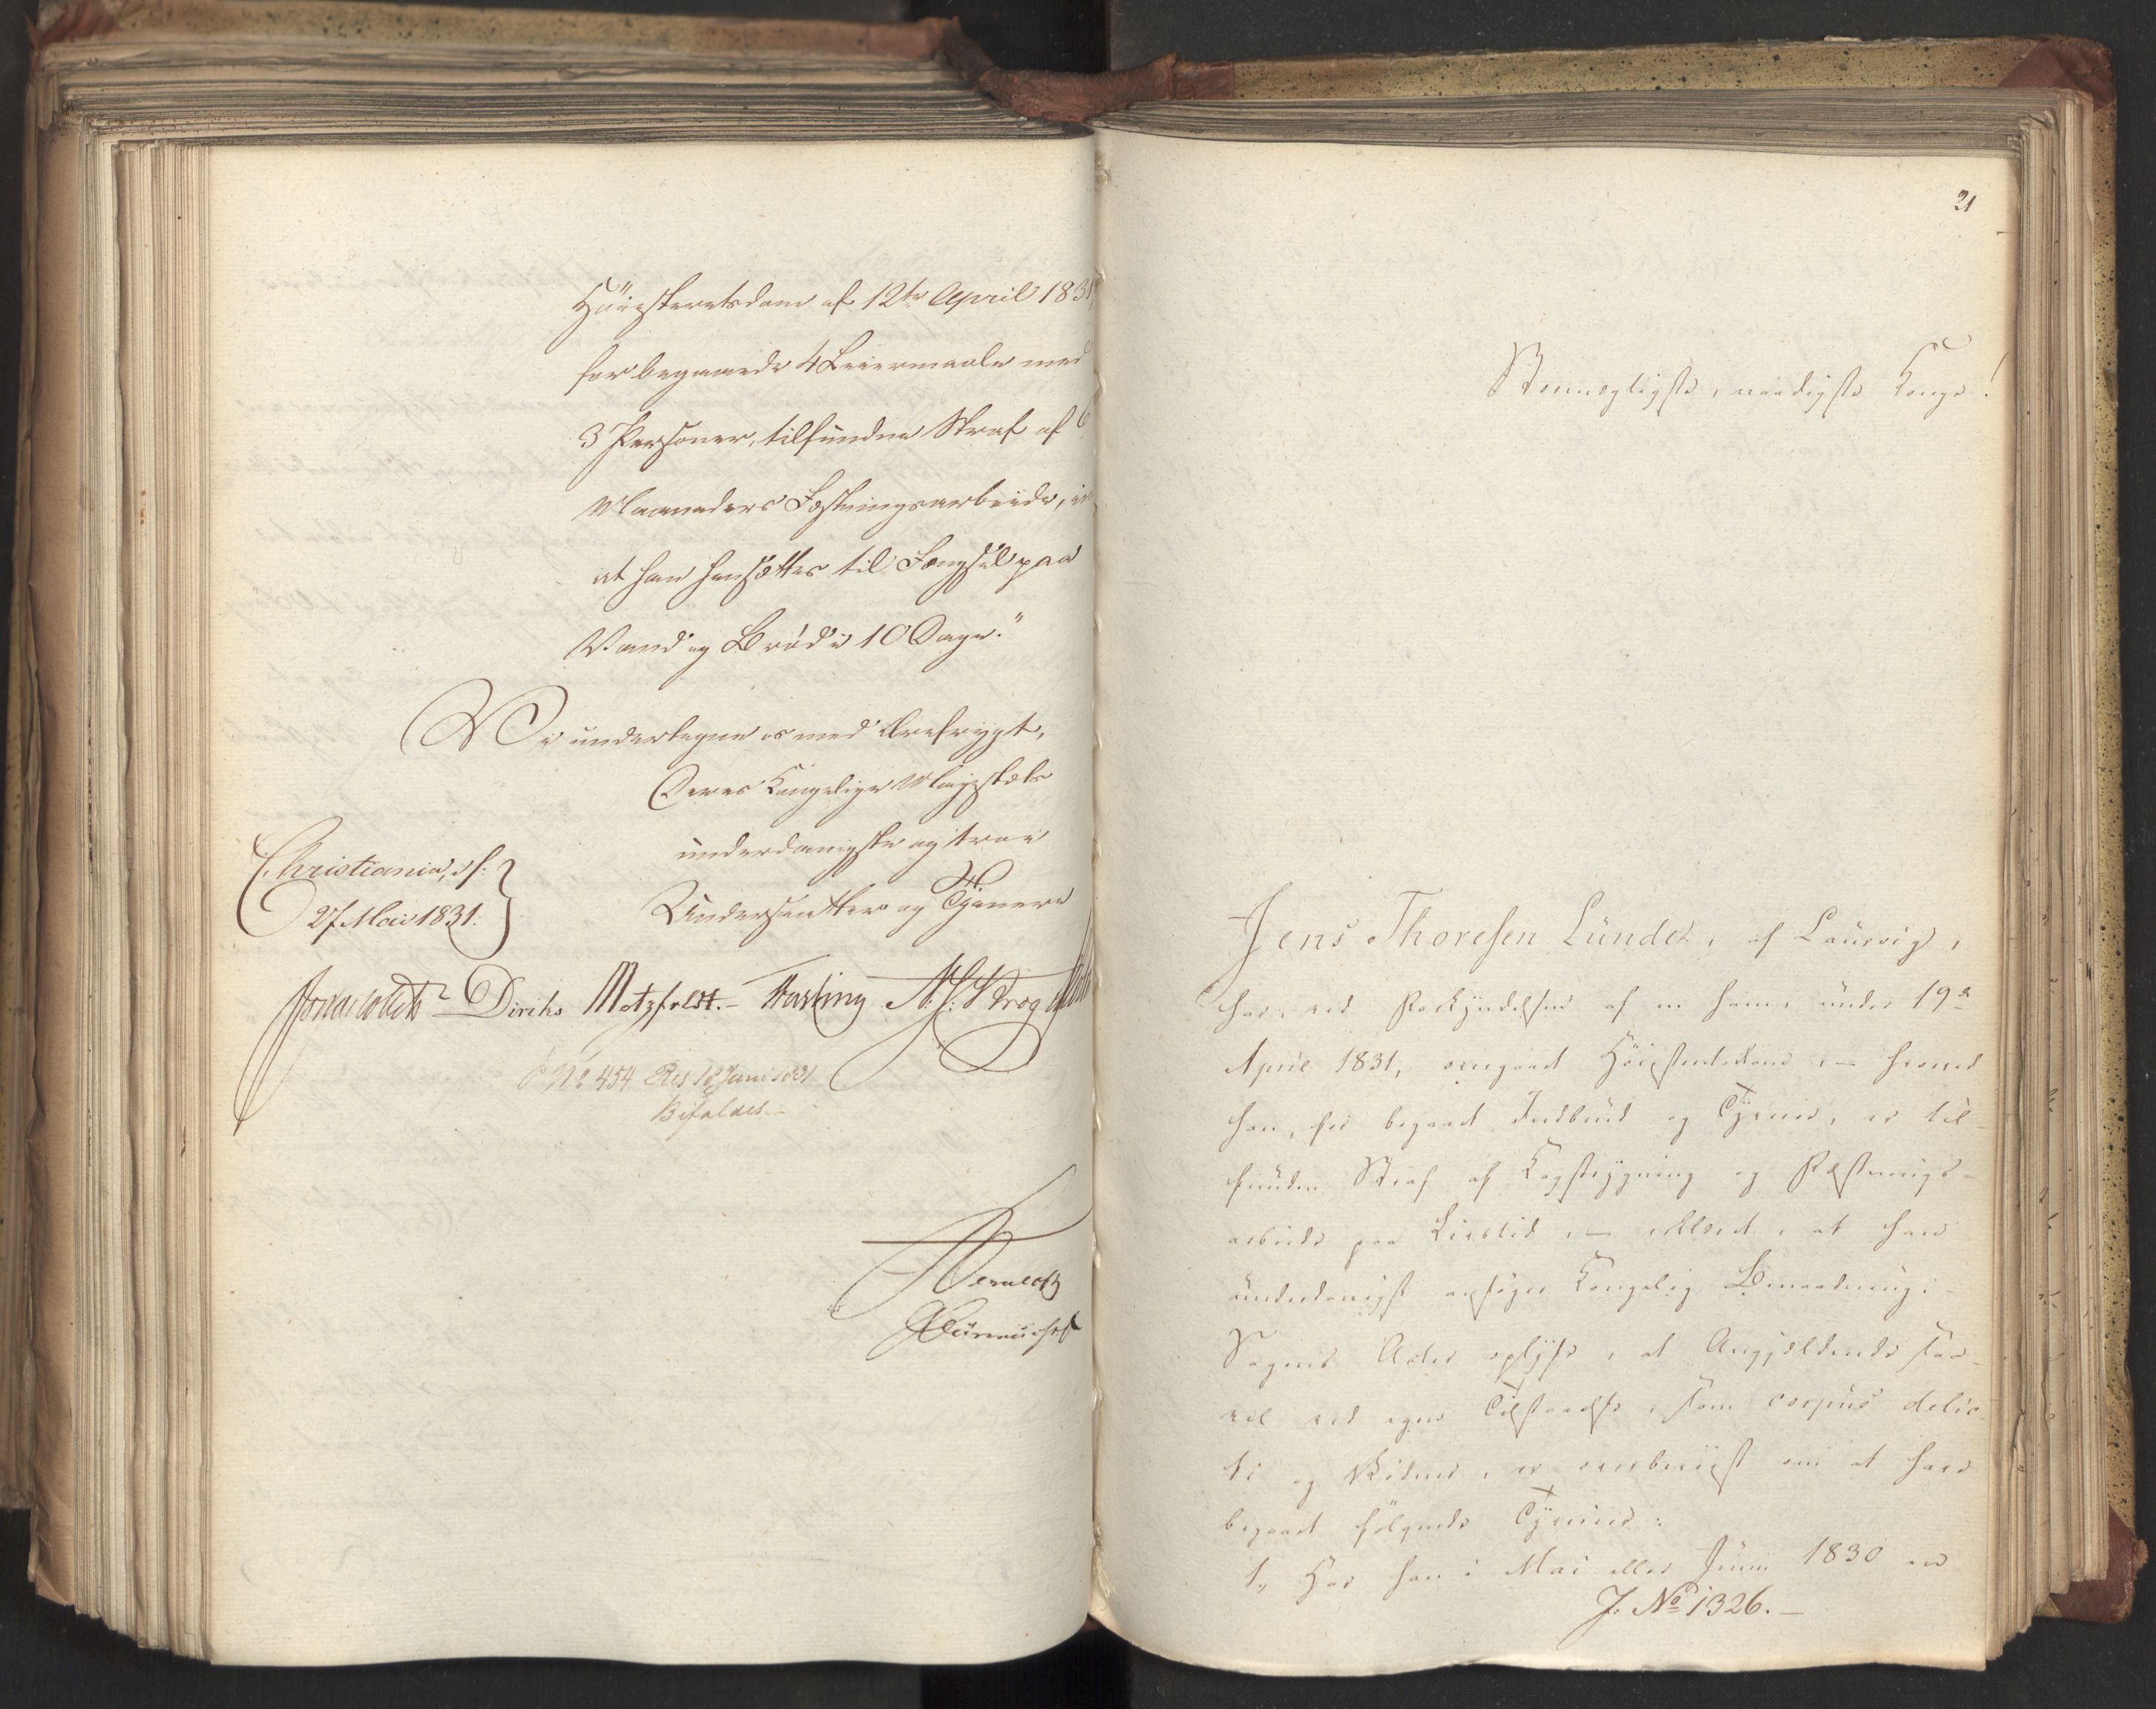 Höiesteretsdom af 12te April 1831,
for begaaede 4 Leiermaale med
3 Personer, tilfundne Straf af 6
Maaneders Fæstningsarbeide,
at han hensættes til Fængsel paa
Vand og Bröd i 10 Dage."
Vi undertegne os med Ærefrygt,
Deres Kongelige Majestæts
underdanigste og troe
Undersaatter og Tjenere
Christiania, d:
27 Mai 1831.
Diriks Motzfeldt. Fasting N. J. Krog
No 454 Res 18 Juni 1831
Bifaldes.
21
Stormægtigste, naadigste Konge!
Jens Thoresen Lunde, af Laurvig,
har, ved Forkyndelsen af en ham, under 19de
April 1831, overgaaet Höiesteretsdom, hvorved
han, for begaaet Indbrud og Tyverie, er til-
funden Straf af Kagstrygning og Fæstnings-
arbeide paa Livstid, erklæret, at han
underdanigst ansöger Kongelig Benaadning.
Sagens Acter oplyse, at Angjældende saa-
vel ved egen Tilstaaelse, som corpus delic-
ti og Vidner, er overbeviist om at have
begaaet fölgende Tyverier:
1, Har han i Mai eller Juni 1830 ved
J. No 1326.